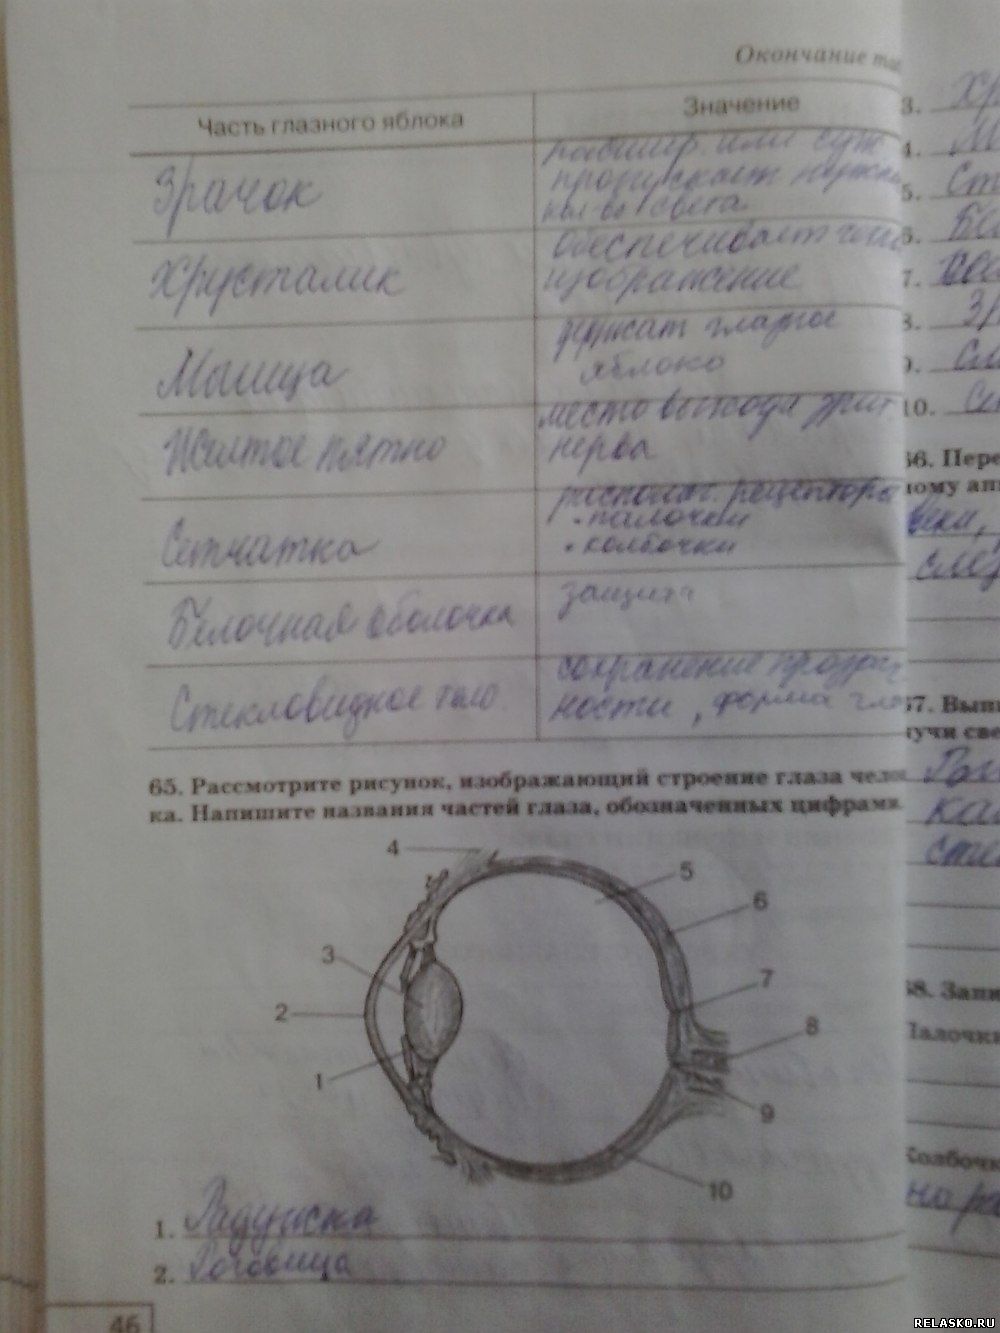 Окончание таб
Часть глазного яблока
Значение
Зрачок
расшир. или суж
пропускает нужное
кол-во света
Хрусталик
обеспечивает
изображение
Мышца
держат глазное
яблоко
Желтое пятно
место выхода зрит.
нерва
Сетчатка
располаг. рецепторы
• палочки
• колбочки
Белочная оболочка
защита
Стекловидное тело
сохранение прозрач
ности, форма гла
65. Рассмотрите рисунок, изображающий строение глаза челов
ка. Напишите названия частей глаза, обозначенных цифрами.
4
5
6
3
7
2
8
1
9
10
1. Радужка
2. Роговица
46
3. Хр
4.
5. Ст
6. Бе
7.
8. Зр
9.
10.
66. Пере
ному ап
веки,
слез
67. Выпи
лучи све
Рог
ка
сте
68. Запи
Палочки
Колбочк
на ра
RELASKO.RU